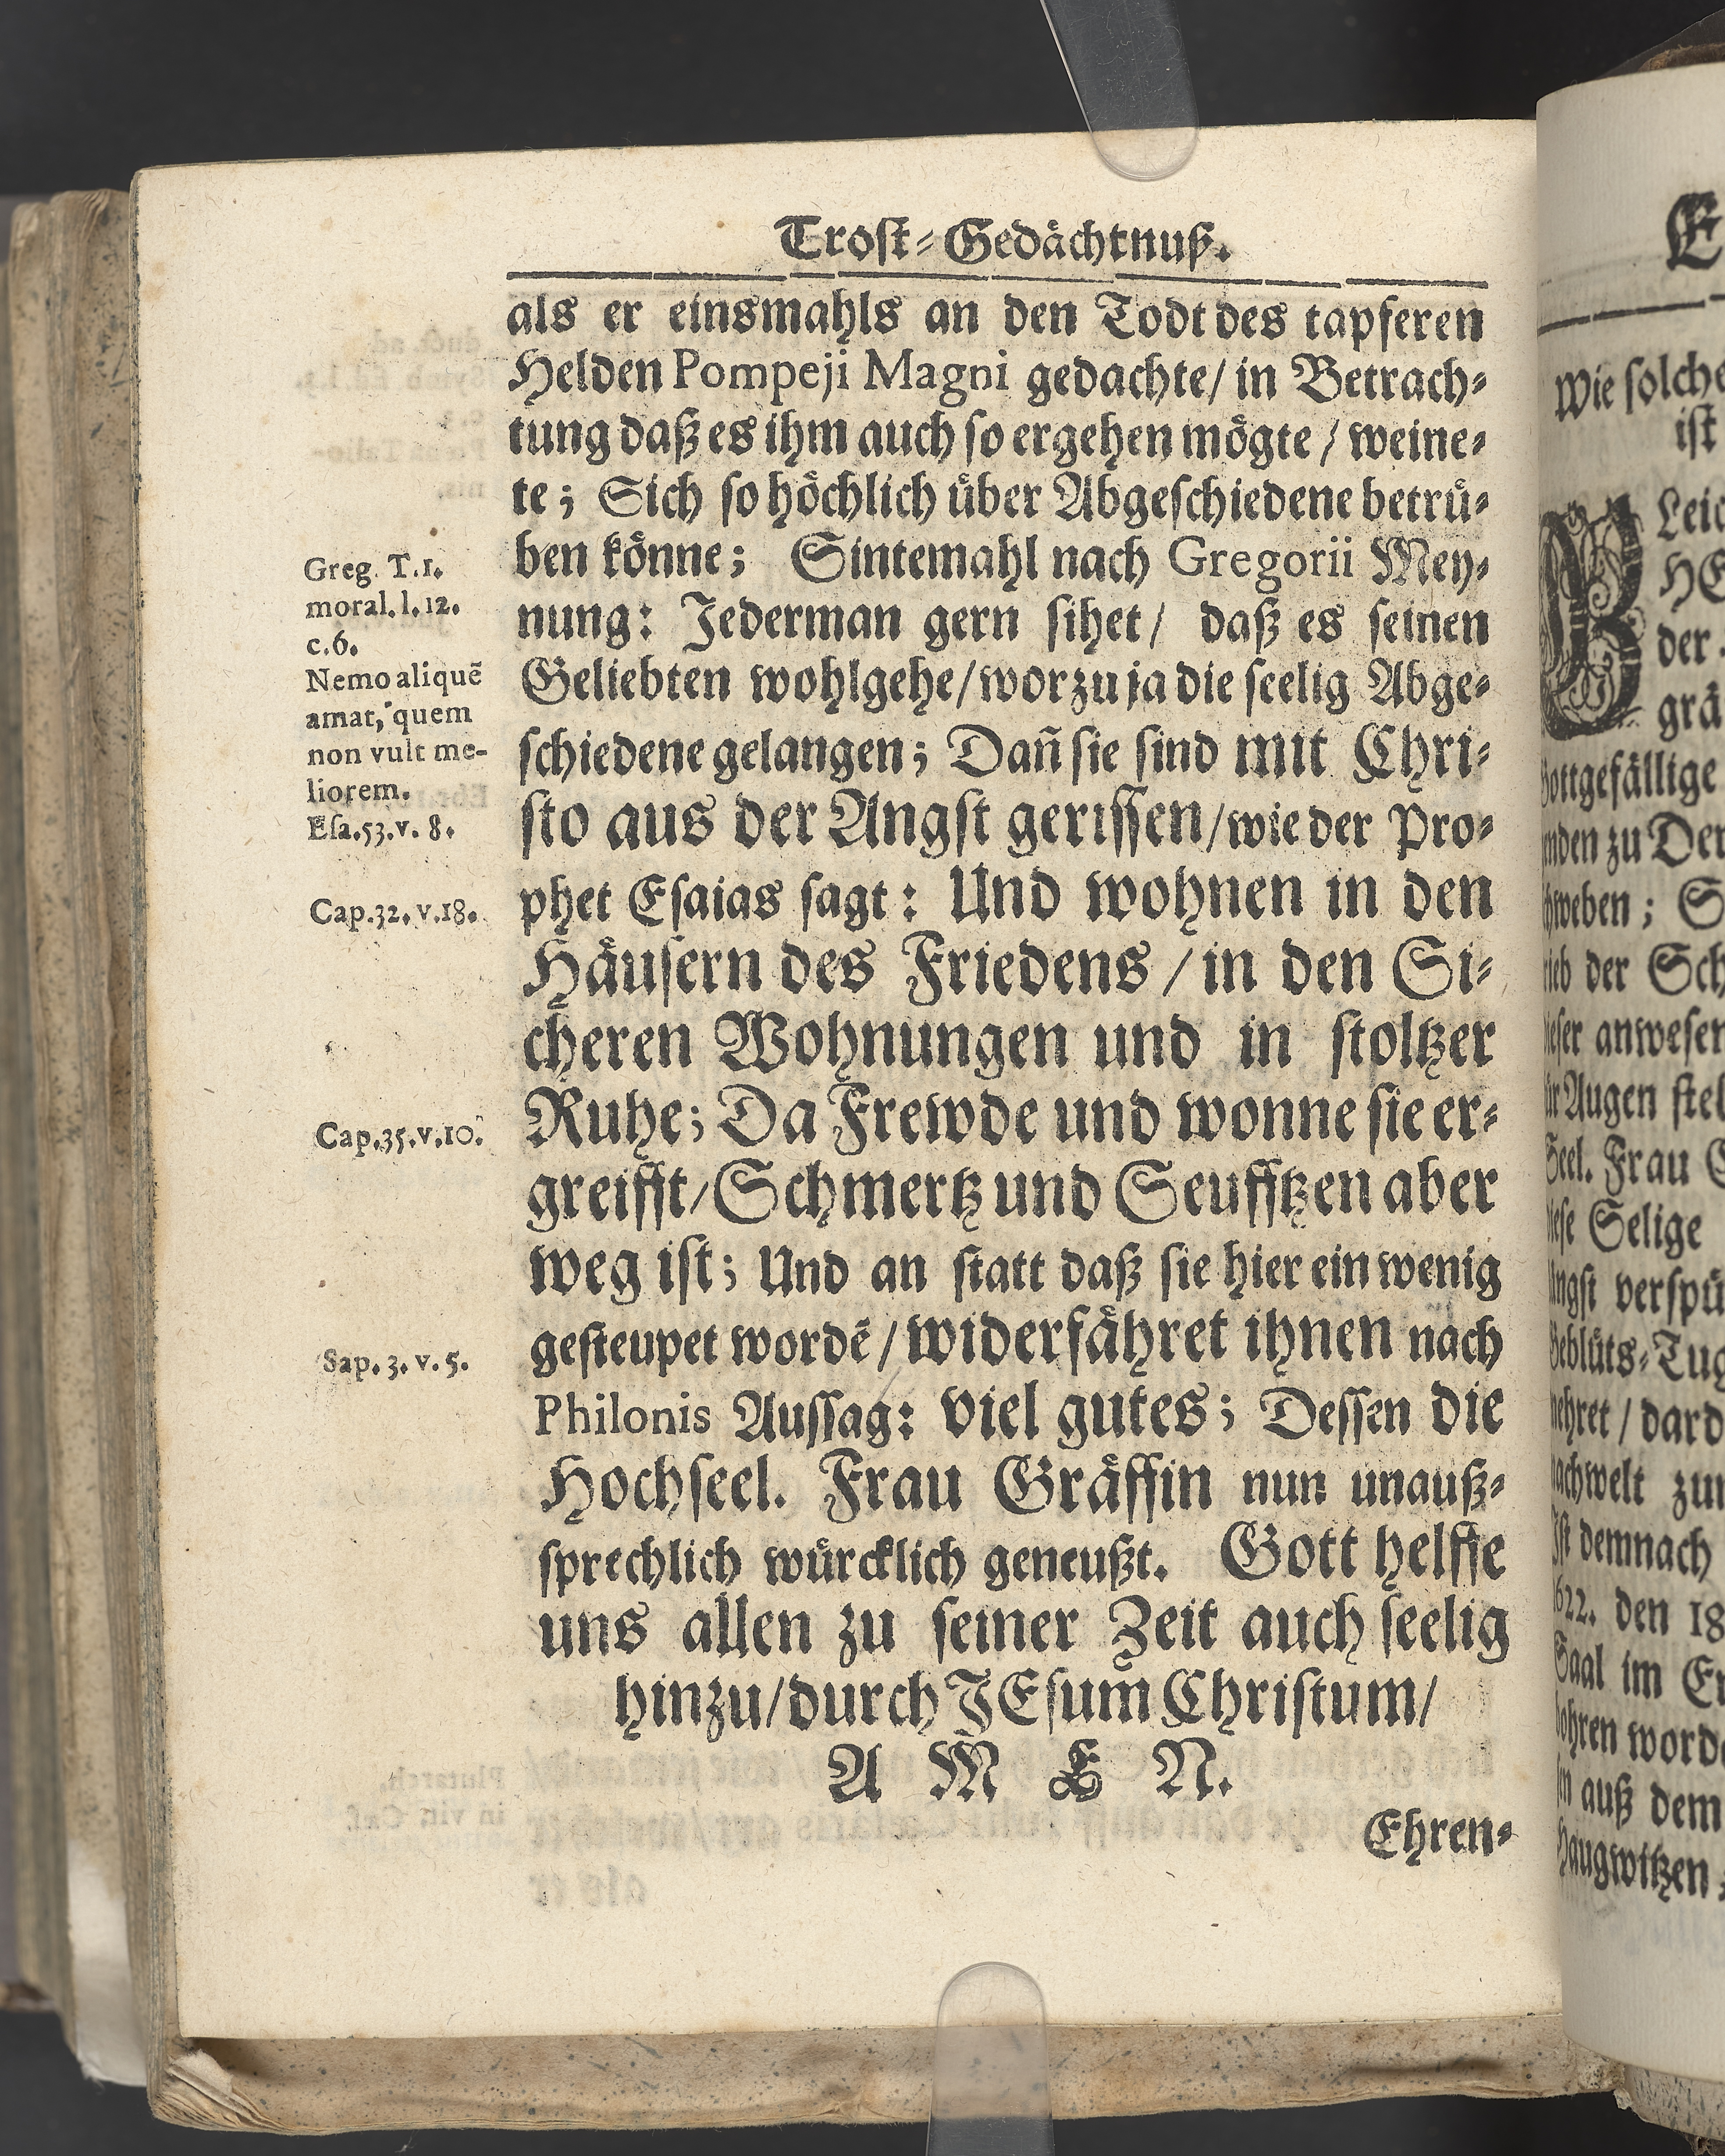 Trost-Gedächtnuß.
als er einsmahls an den Todt des tapferen
Helden Pompeji Magni gedachte/ in Betrach-
tung daß es ihm auch so ergehen mögte/ weine-
te; Sich so höchlich über Abgeschiedene betrü-
ben könne; Sintemahl nach Gregorii Mey-
nung: Jederman gern sihet/ daß es seinen
Geliebten wohlgehe/ worzu ja die seelig Abge-
schiedene gelangen; Dañ sie sind mit Chri-
sto aus der Angst gerissen/ wie der Pro-
phet Esaias sagt: Und wohnen in den
Häusern des Friedens/ in den Si-
cheren Wohnungen und in stoltzer
Ruhe; Da Frewde und wonne sie er-
greifft/ Schmertz und Seufftzen aber
weg ist; Und an statt daß sie hier ein wenig
gesteupet wordē/ widerfähret ihnen nach
Philonis Aussag: viel gutes; Dessen die
Hochseel. Frau Gräffin nun unauß-
sprechlich würcklich geneußt. Gott helffe
uns allen zu seiner Zeit auch seelig
hinzu/ durch JEsum Christum/
A M E N.
Ehren-
Greg. T.1.
moral. l. 12.
c.6.
Nemo aliquē
amat, quem
non vult me-
liorem.
Esa.53.v. 8.
Cap.32. v.18.
Cap.35.v.10.
Sap. 3. v. 5.
E
Wie solche
ist
Leic
HE
der
grä
Gottgefällige
zu Der
; S
der Sch
anwesen
Augen stel
Seel. Frau
Selige
Angst verspü
Geblüts-Tug
/ dard
zur
demnach
1622. den 18
Saal im
worde
auß dem
Haugwitzen,